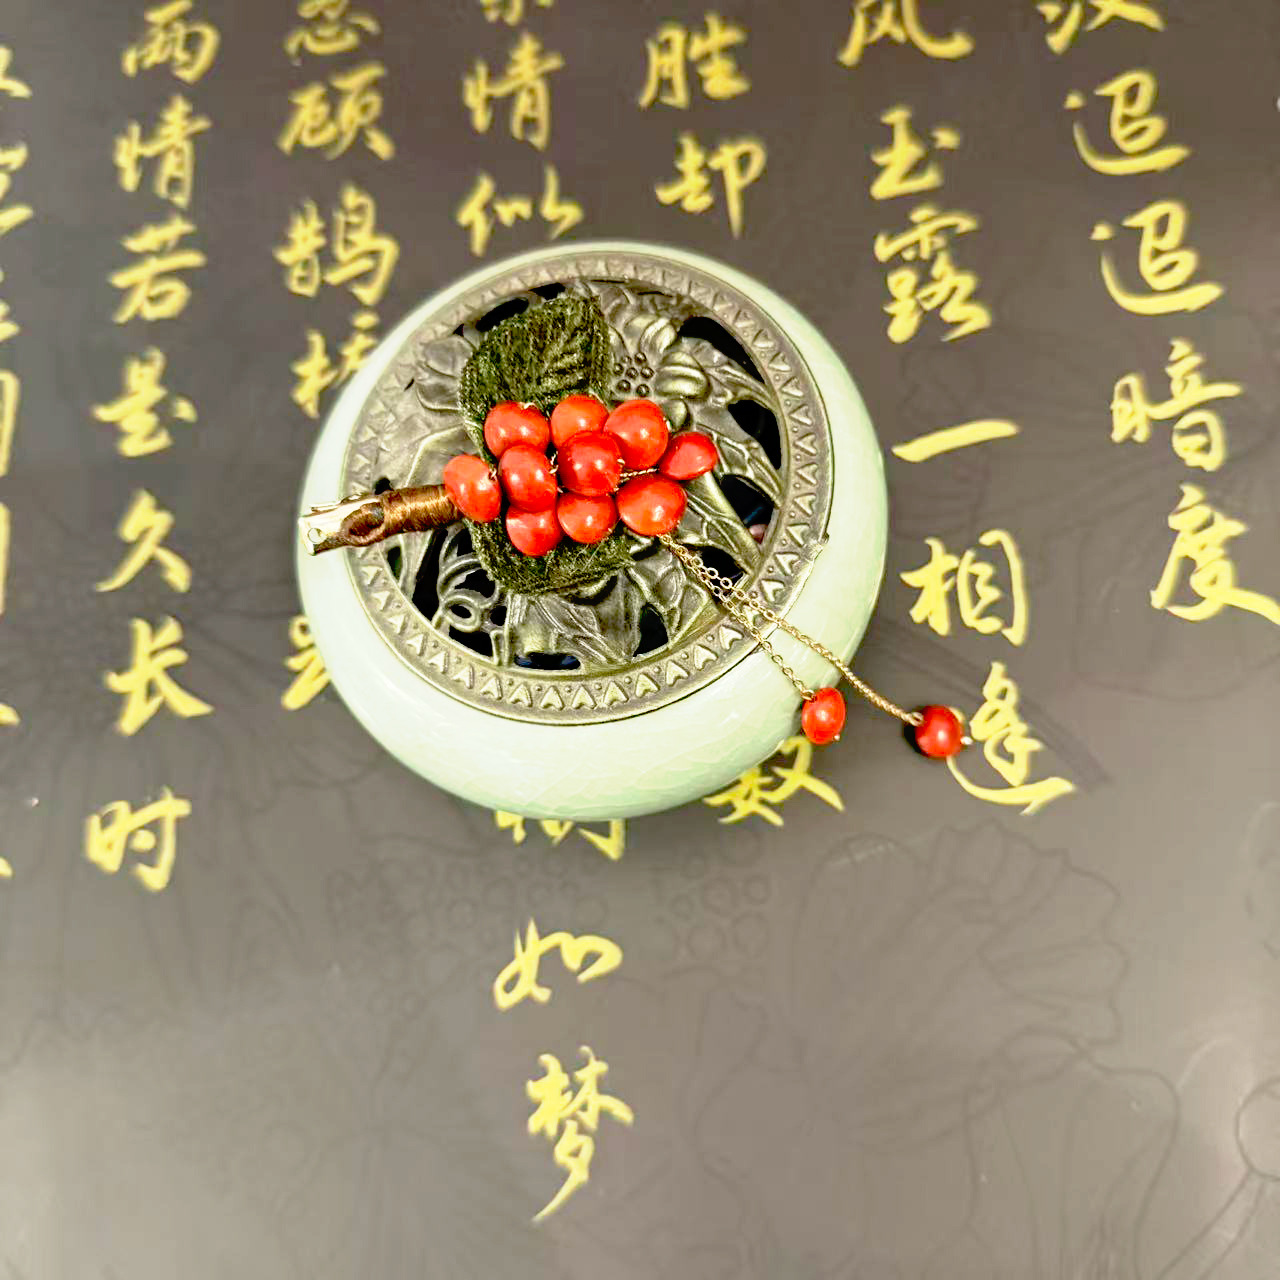 追追暗度
风玉露一相逢
胜却 数
情似 如梦
忍顾鹊桥
两情若是久长时